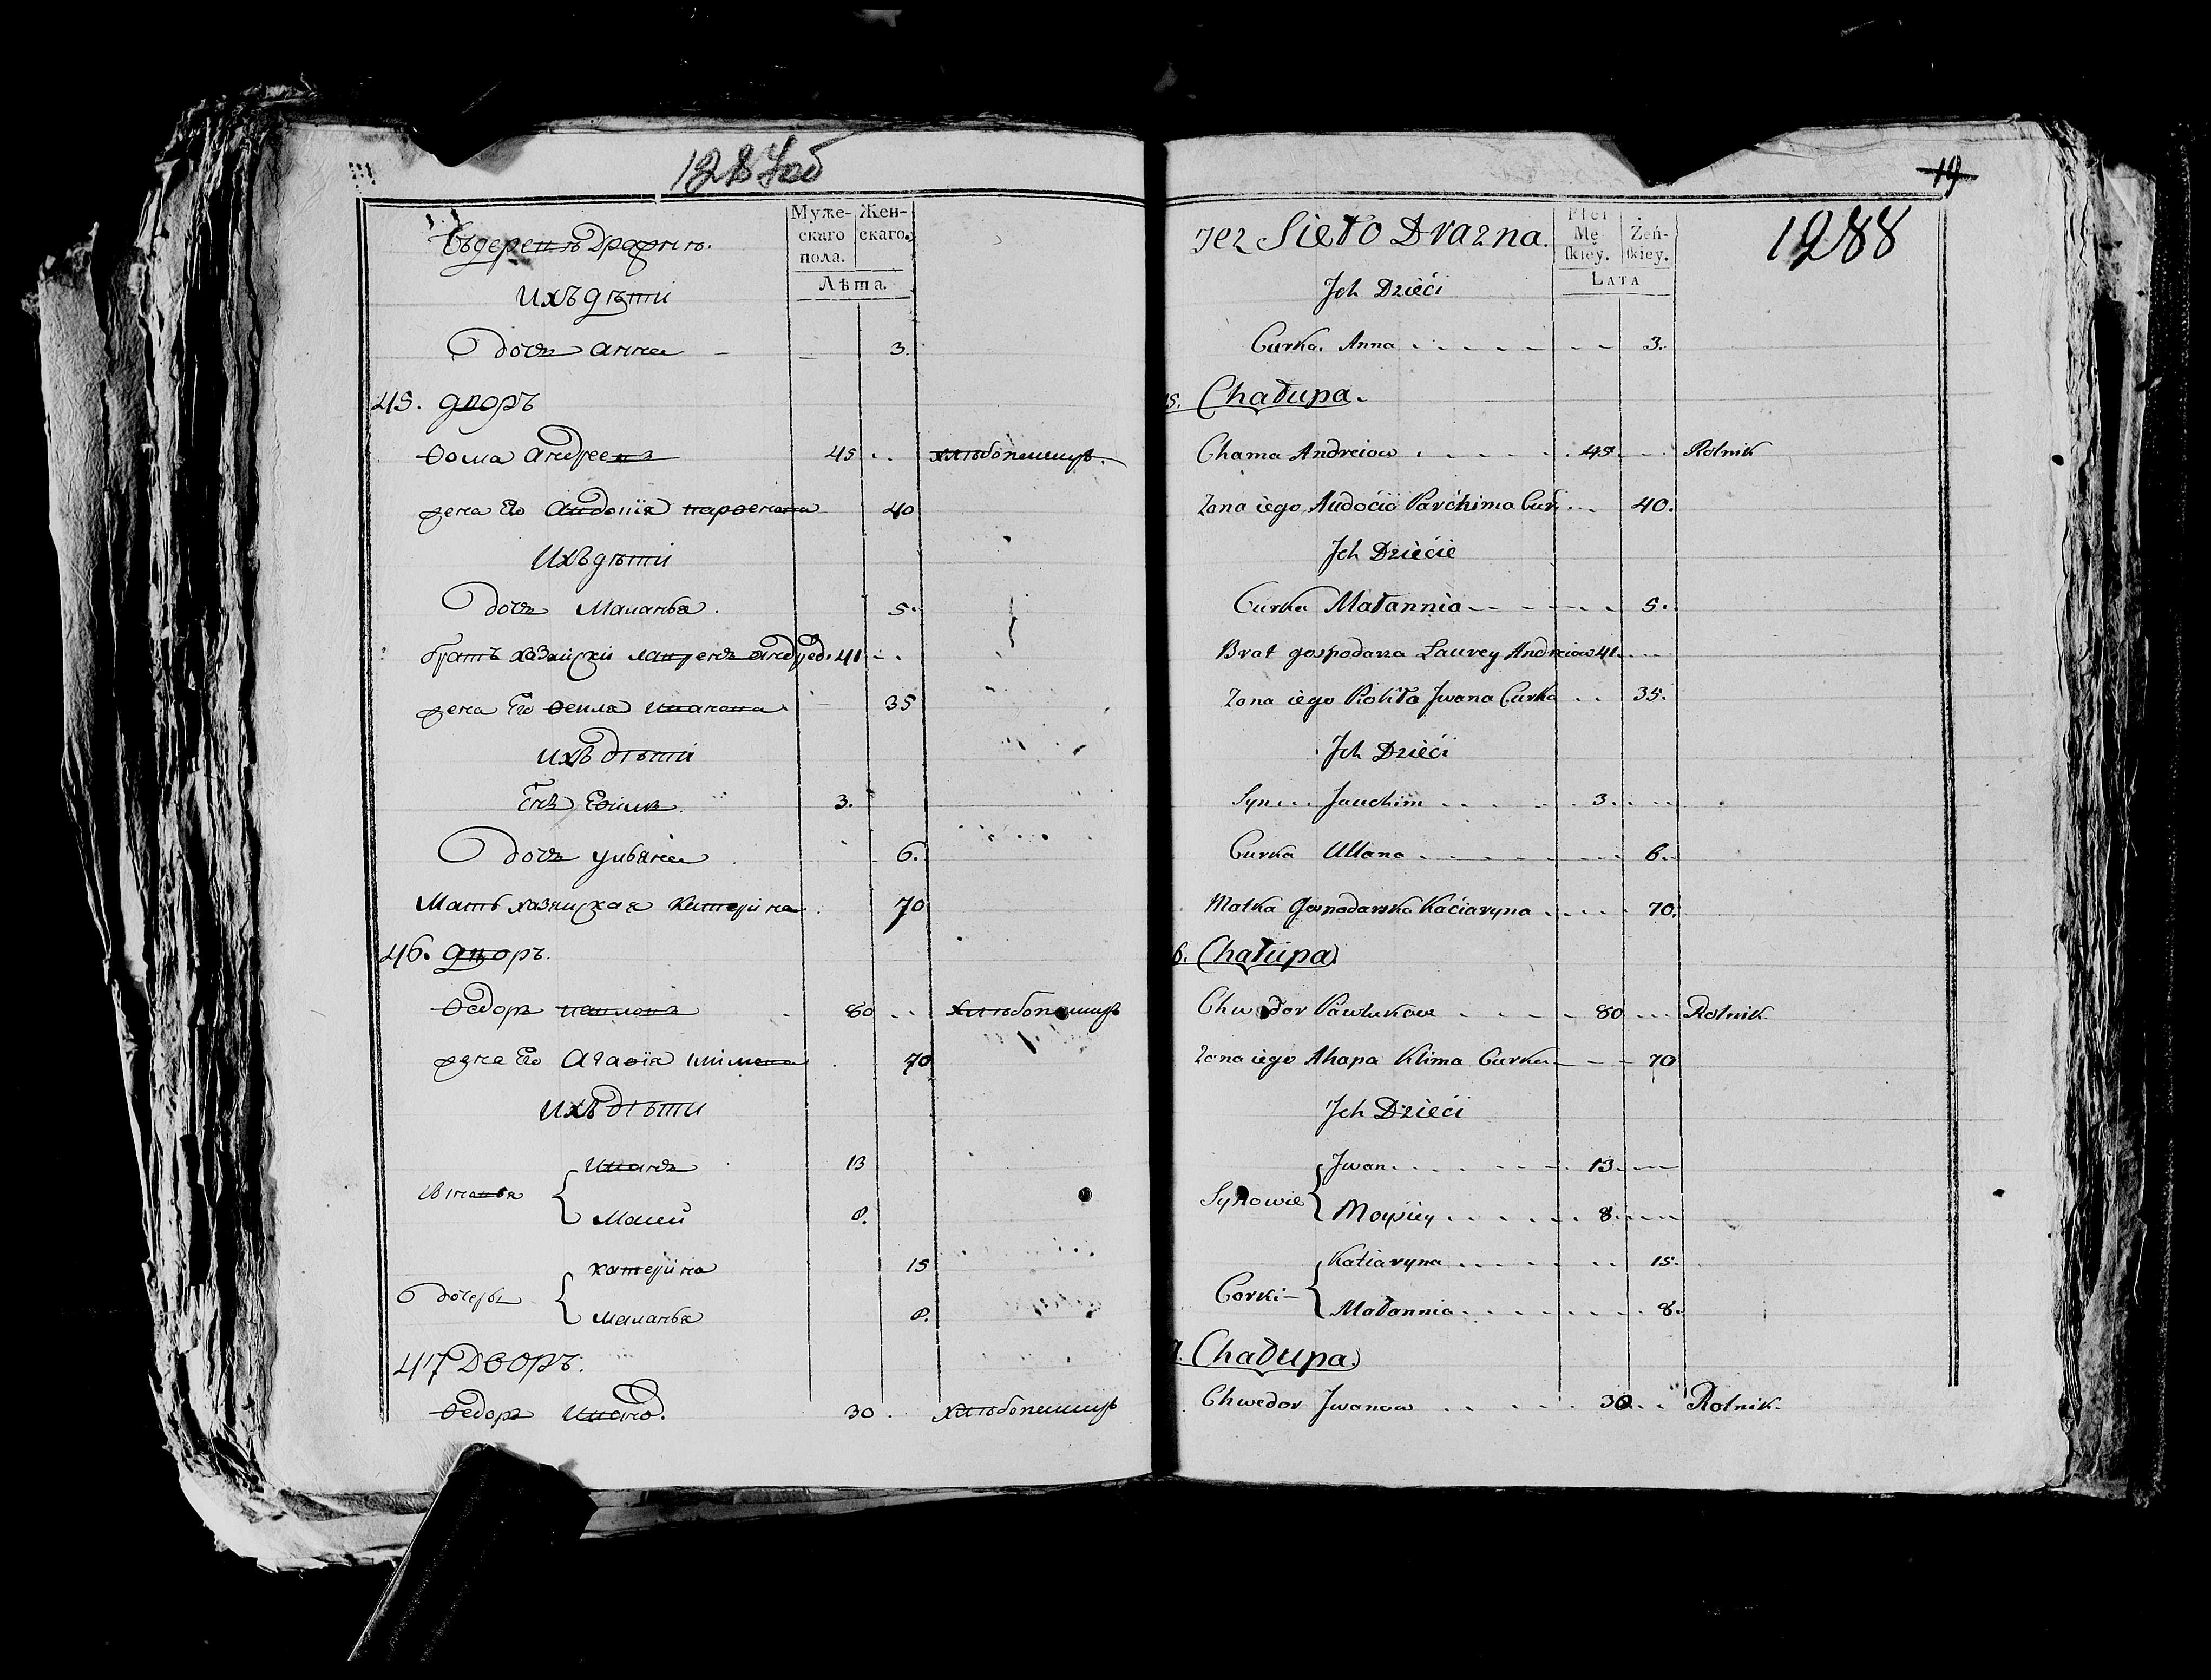 1287об
Въ деревнѣ Дражнѣ.
Муже-
скаго
пола.
Жен-
скаго.
Лѣта.
Ихъ дѣти
Дочь Анна - - 3.
45. дворъ
Ѳома Андреевъ 45 .. хлѣбопашецъ.
жена Его Авдотія Парѳенова 40
Ихъ дѣти
Дочь Маланья. 5.
братъ хазяйскій Лаврентъ Андреев. 41 ..
жена Его Ѳекла Иванова. 35
Ихъ дѣти
Сынъ Ефимъ. 3.
Дочь Ульяна 6.
Мать хазяйская Катерина 70
46. дворъ.
Ѳедоръ Павловъ 80 .. хлѣбопашецъ
жена Его Агаѳія Климова 70
Ихъ дѣти
Сыновья
Иванъ 13
Масей 8.
Дочеры
Катерина 15
Маланья 8.
47 Дворъ.
Ѳедоръ Ивано. 30 . хлѣбопашецъ
19
1288
Jez Sieło Drazna.
Płci
Mę
skiey.
Żeń-
skiey.
LATA
Jch Dzieći
Curka. Anna . . . 3.
45. Chałupa.
Chama Andreiow . . . . 45. . . Rolnik
Zona iego Audocia Parchima Cur. . . . 40.
Jch Dziećie
Curka Małannia . . . 5.
Brat gospodarza Laurey Andreiow 41. . . .
Zona iego Jwana Curka . . 35.
Jch Dzieći
Syn . . . Jauchim . . . . 3. . . .
Curka Ullana . . . . 6.
Matka Gospodarska Kaciaryna . . . . 70.
6. Chałupa.
Chwedor Pawlukow . . . . 80 . . . Rolnik
Zona iego Ahapa Klima Curka - - - 70
Jch Dzieći
Synowie
Jwan . . . . . 13. . .
Moysiey . . . . . 8. . . .
Corki
Katiaryna . . . . . 15.
Małannia . . . . . 8.
7. Chałupa.
Chwedor Jwanow . . . . 30. . . Rolnik.